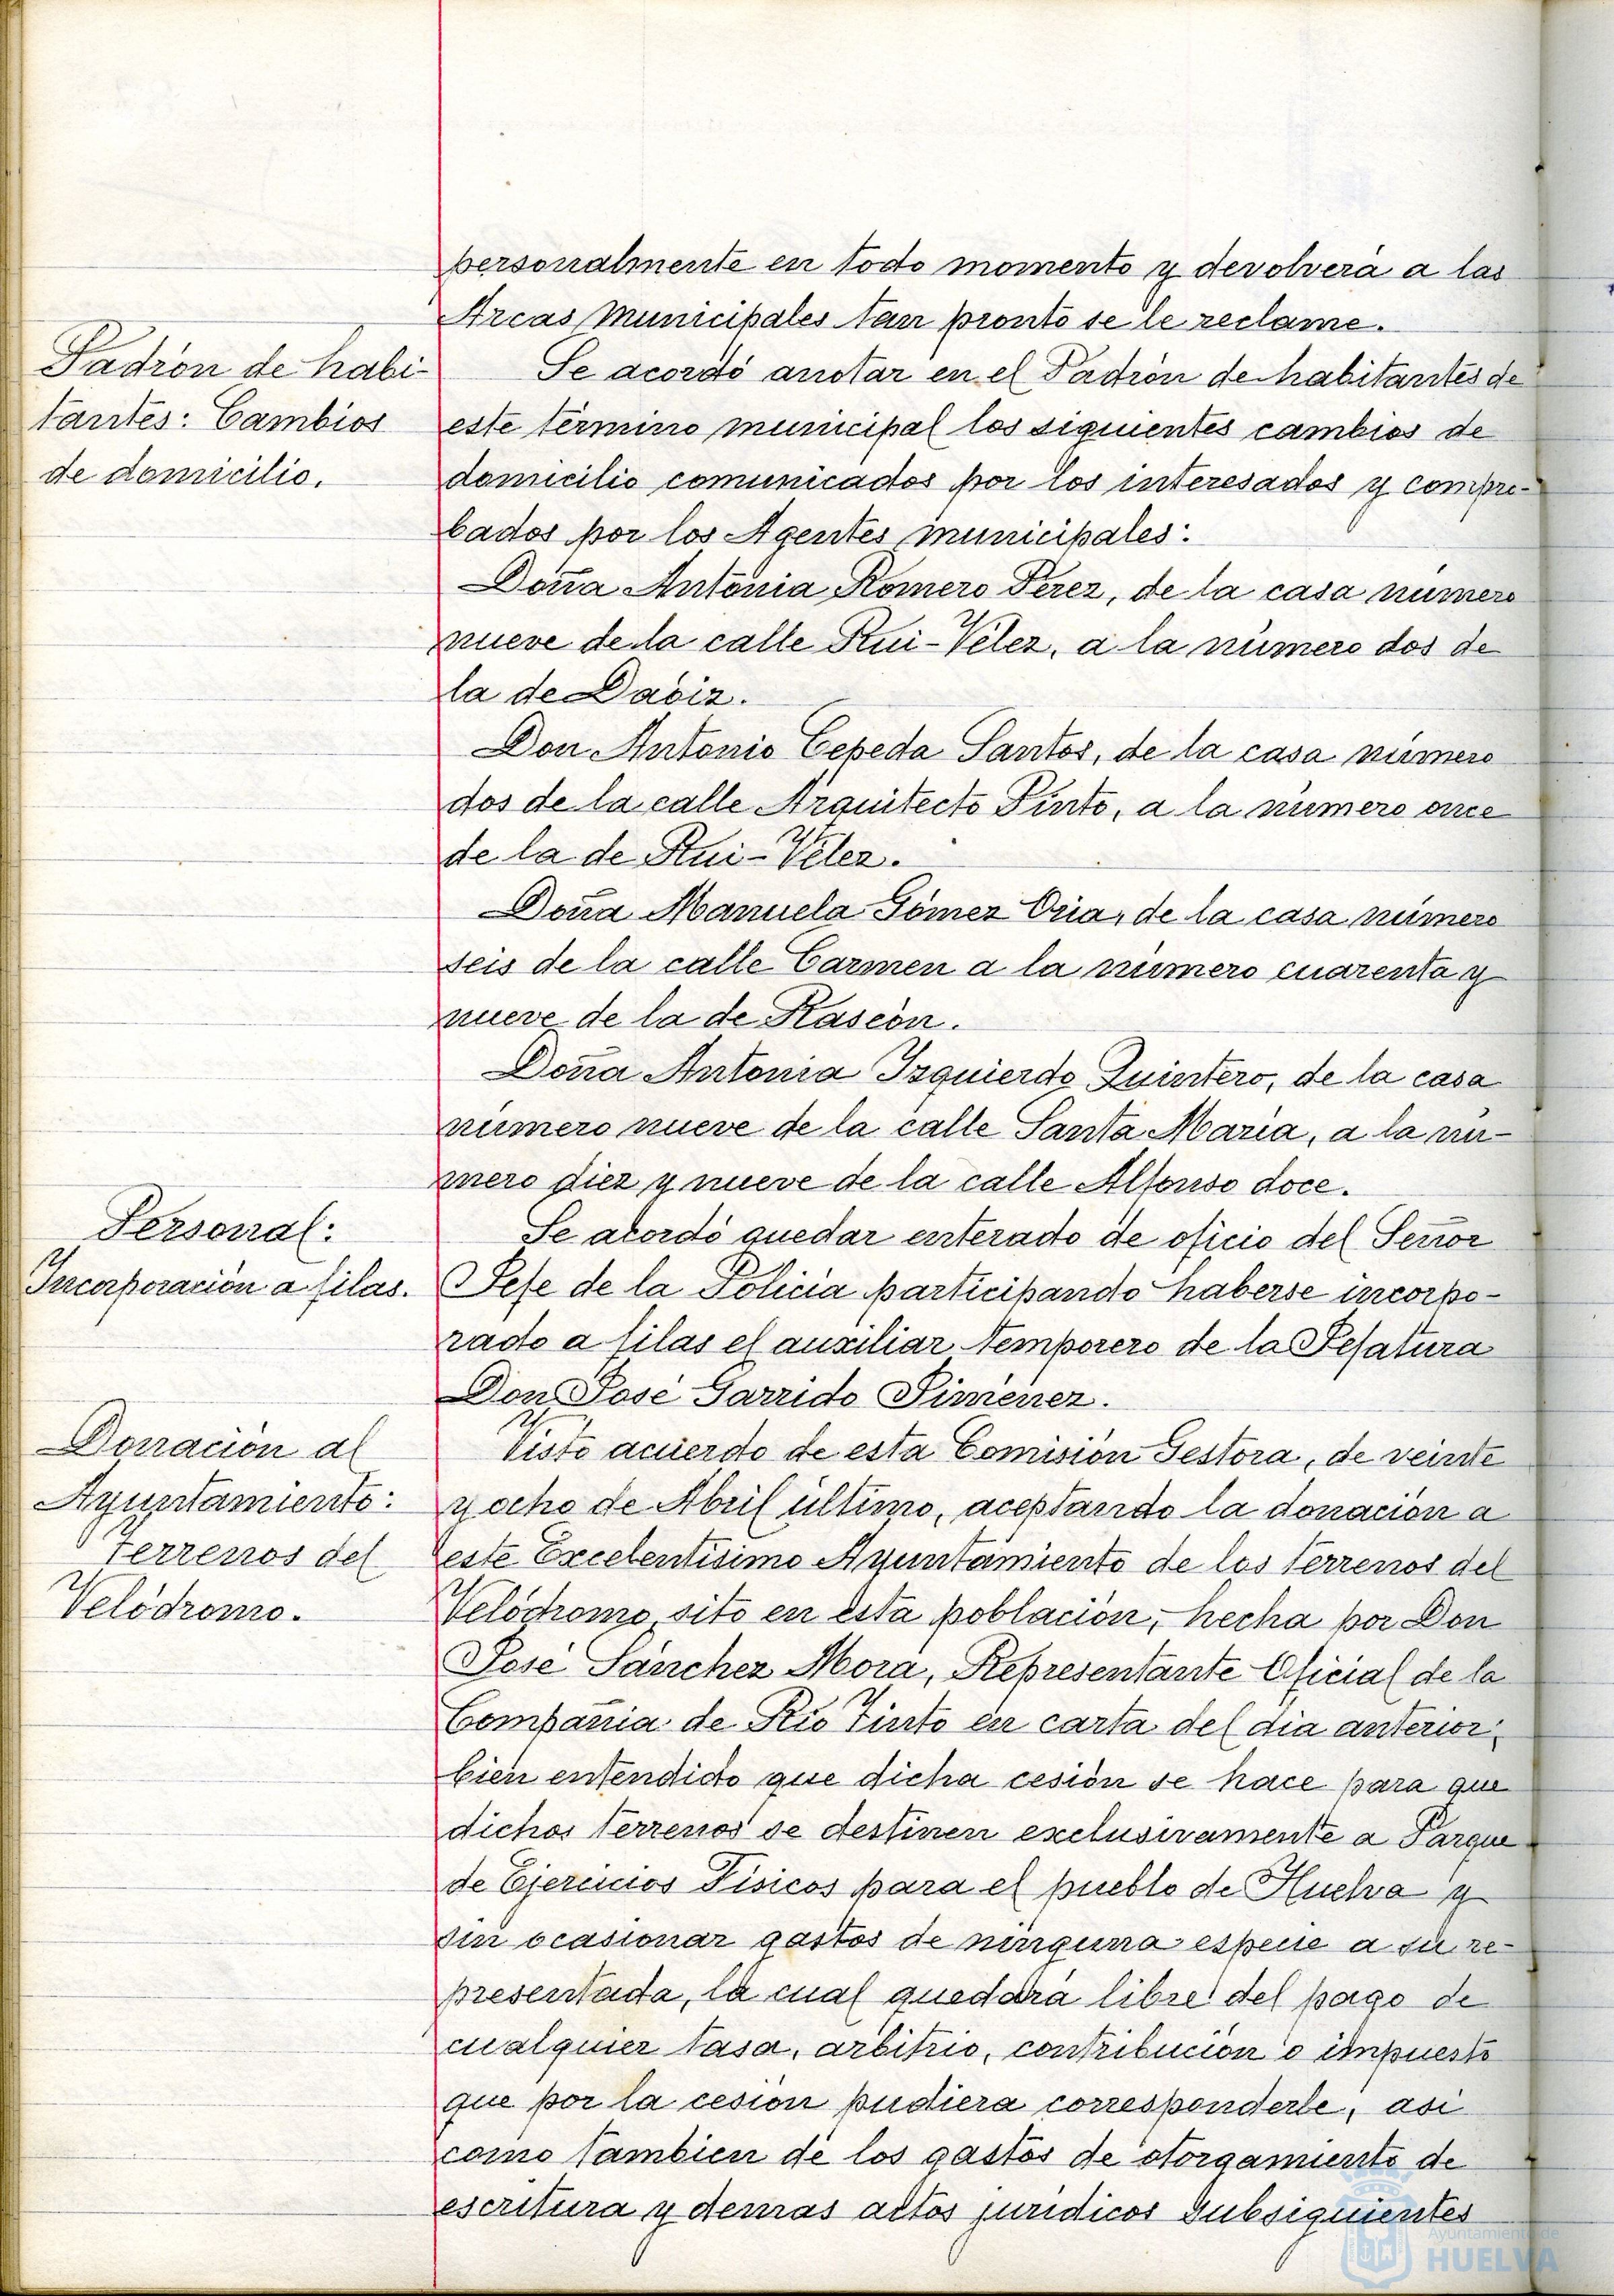 personalmente en todo momento y devolverá a las
Arcas Municipales tan pronto se le reclame.
Padrón de habi-
tantes: Cambios
de domicilio.
Se acordó anotar en el Padrón de habitantes de
este término municipal los siguientes cambios de
domicilio comunicados por los interesados y compro-
bados por los Agentes municipales:
Doña Antonia Romero Pérez, de la casa número
nueve de la calle Rui-Vélez, a la número dos de
la de Daoiz.
Don Antonio Cepeda Santos, de la casa número
dos de la calle Arquitecto Pinto, a la número once
de la de Rui-Vélez.
Doña Manuela Gómez Oria, de la casa número
seis de la calle Carmen a la número cuarenta y
nueve de la de Rascón.
Doña Antonia Izquierdo Quintero, de la casa
número nueve de la calle Santa María, a la nú-
mero diez y nueve de la calle Alfonso doce.
Personal:
Incorporación a filas.
Se acordó quedar enterado de oficio del Señor
Jefe de la Policía participando haberse incorpo-
rado a filas el auxiliar temporero de la Jefatura
Don José Garrido Jiménez.
Donación al
Ayuntamiento:
Terrenos del
Velódromo.
Visto acuerdo de esta Comisión Gestora, de veinte
y ocho de Abril último, aceptando la donación a
este Excelentísimo Ayuntamiento de los terrenos del
Velódromo, sito en esta población, hecha por Don
José Sánchez Mora, Representante Oficial de la
Compañía de Río Tinto en carta del día anterior,
bien entendido que dicha cesión se hace para que
dichos terrenos se destinen exclusivamente a Parque
de Ejercicios Físicos para el pueblo de Huelva y
sin ocasionar gastos de ninguna especie a su re-
presentada, la cual quedará libre del pago de
cualquier tasa, arbitrio, contribución o impuesto
que por la cesión pudiera corresponderle, así
como tambien de los gastos de otorgamiento de
escritura y demás actos jurídicos subsiguientes
Ayuntamiento de
HUELVA